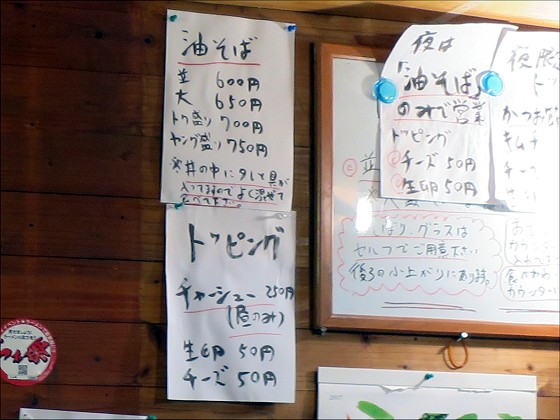 油そば
並 600円
大 650円
トク盛り 700円
ヤング盛り 750円
※丼の中にタレと具が
入ってますのでよく混ぜて
食べて下さい。
トッピング
チャーシュー 250円
(昼のみ)
生卵 50円
チーズ 50円
夜は
「油そば」
のみで営業
トッピング
チーズ 50円
生卵 50円
夜限
かつお
キムチ
チー
並
おしぼり、グラスは
セルフでご用意下さい
後ろの小上がりにあります。
カウン
入れて
食べ
カウンター
2017